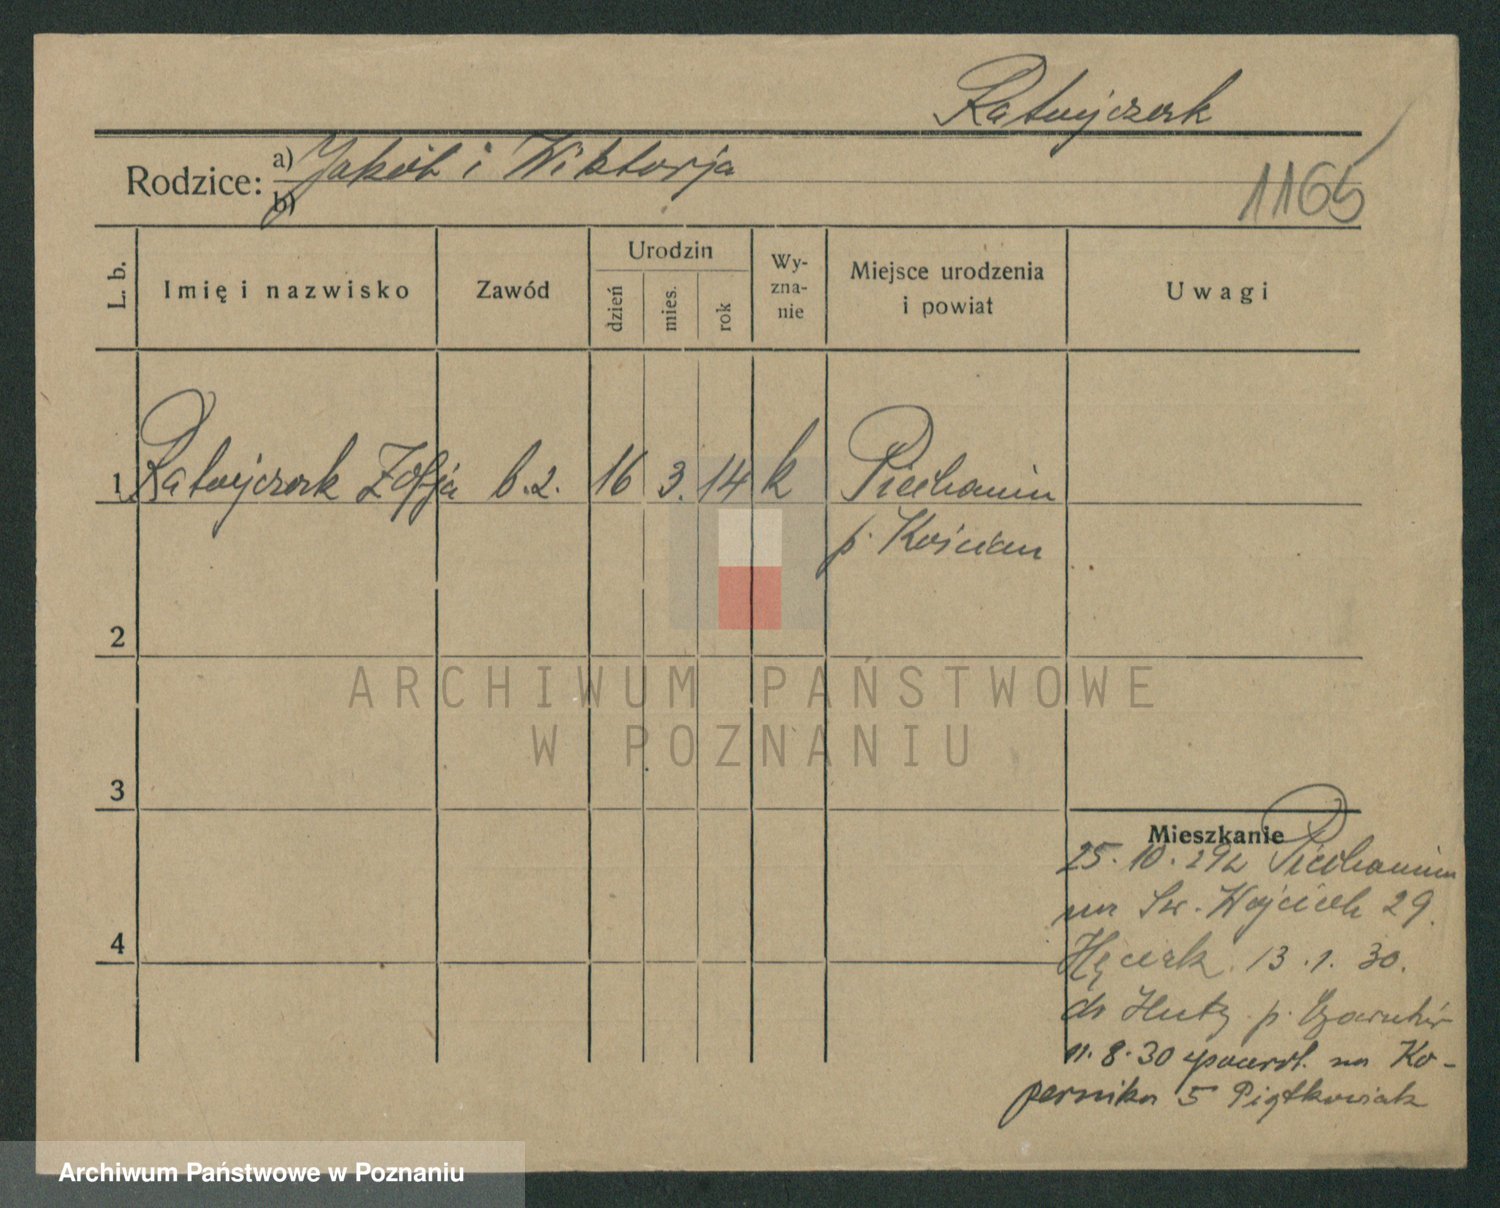 Ratajczak
Rodzice: a) Jakób i Wiktorja
b)
1165
L. b.
Imię i nazwisko
Zawód
Urodzin
dzień
mies.
rok
Wy-
zna-
nie
Miejsce urodzenia
i powiat
Uwagi
1 Ratajczak Zofja b. z. 16 3. 14 k Piechanin
p. Kościan
2
ARCHIWUM PAŃSTWOWE
W POZNANIU
3
Mieszkanie
25. 10. 29 z Piechanin
na Św. Wojciech 29.
13. 1. 30.
do Huty p. Czarnków
11. 8. 30 na Ko-
pernika 5 Piątkowiak
4
Archiwum Państwowe w Poznaniu